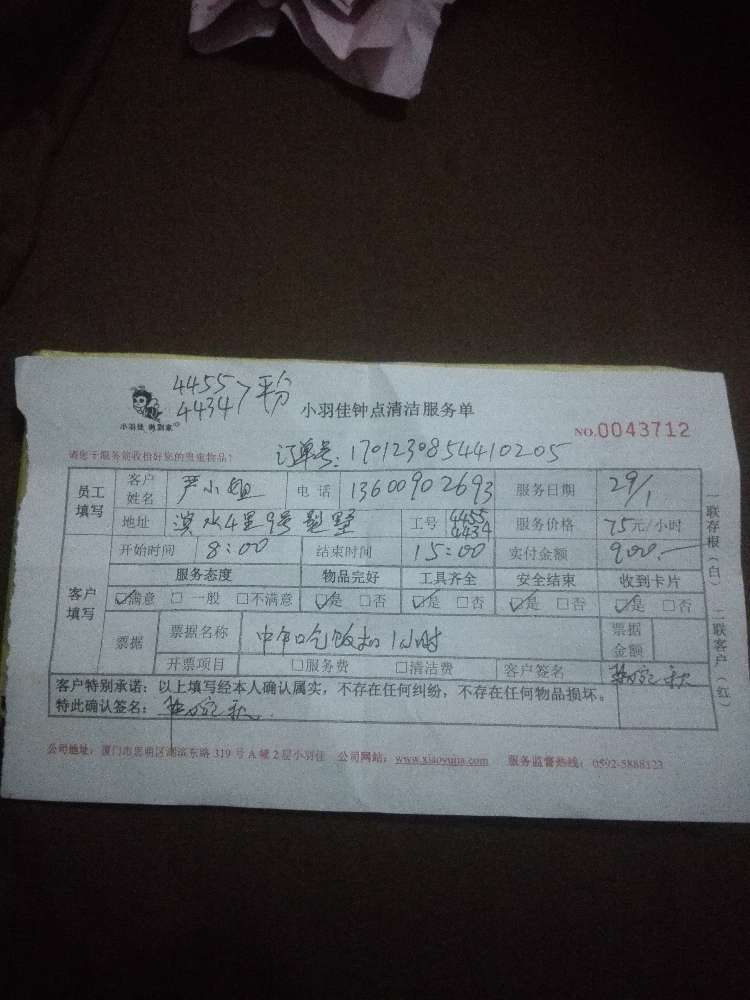 4455
4434 > 平分
小羽佳 帅到家
小羽佳钟点清洁服务单
NO.0043712
请您于服务前收拾好您的贵重物品!
订单号:1701230854410205
员工填写 客户姓名 严小姐 电话 13600902693 服务日期 29/1
地址 4里9号别墅 工号 4455 4434 服务价格 75元/小时
开始时间 8:00 结束时间 15:00 实付金额 900.—
客户填写 服务态度 物品完好 工具齐全 安全结束 收到卡片
☑满意 □一般 □不满意 ☑是 □否 ☑是 □否 ☑是 □否 ☑是 □否
票据 票据名称 中午吃饭扣1小时 票据金额
开票项目 □服务费 □清洁费 客户签名
客户特别承诺:以上填写经本人确认属实,不存在任何纠纷,不存在任何物品损坏。
特此确认签名:
一联存根(白) 二联客户(红)
公司地址:厦门市思明区湖滨东路319号A幢2层小羽佳 公司网站:www.xiaoyujia.com 服务监督热线:0592-5888123